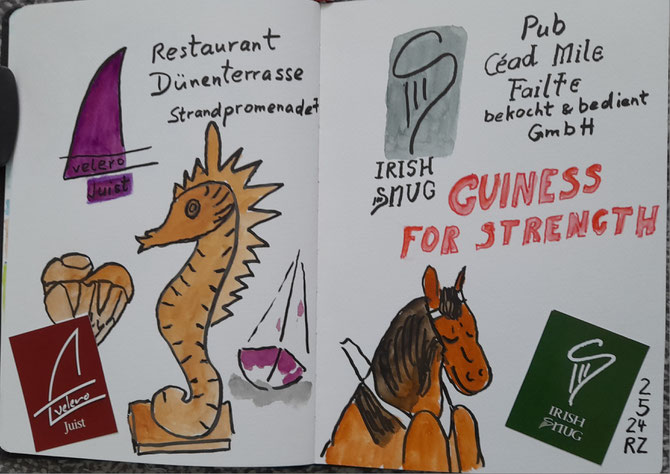 Restaurant
Dünenterrasse
Strandpromenade 7
velero
Juist
velero
Juist
Pub
Céad Mile
Failte
bekocht & bedient
GmbH
IRISH
SNUG
GUINESS
FOR STRENGTH
IRISH
SNUG
2
5
24
RZ